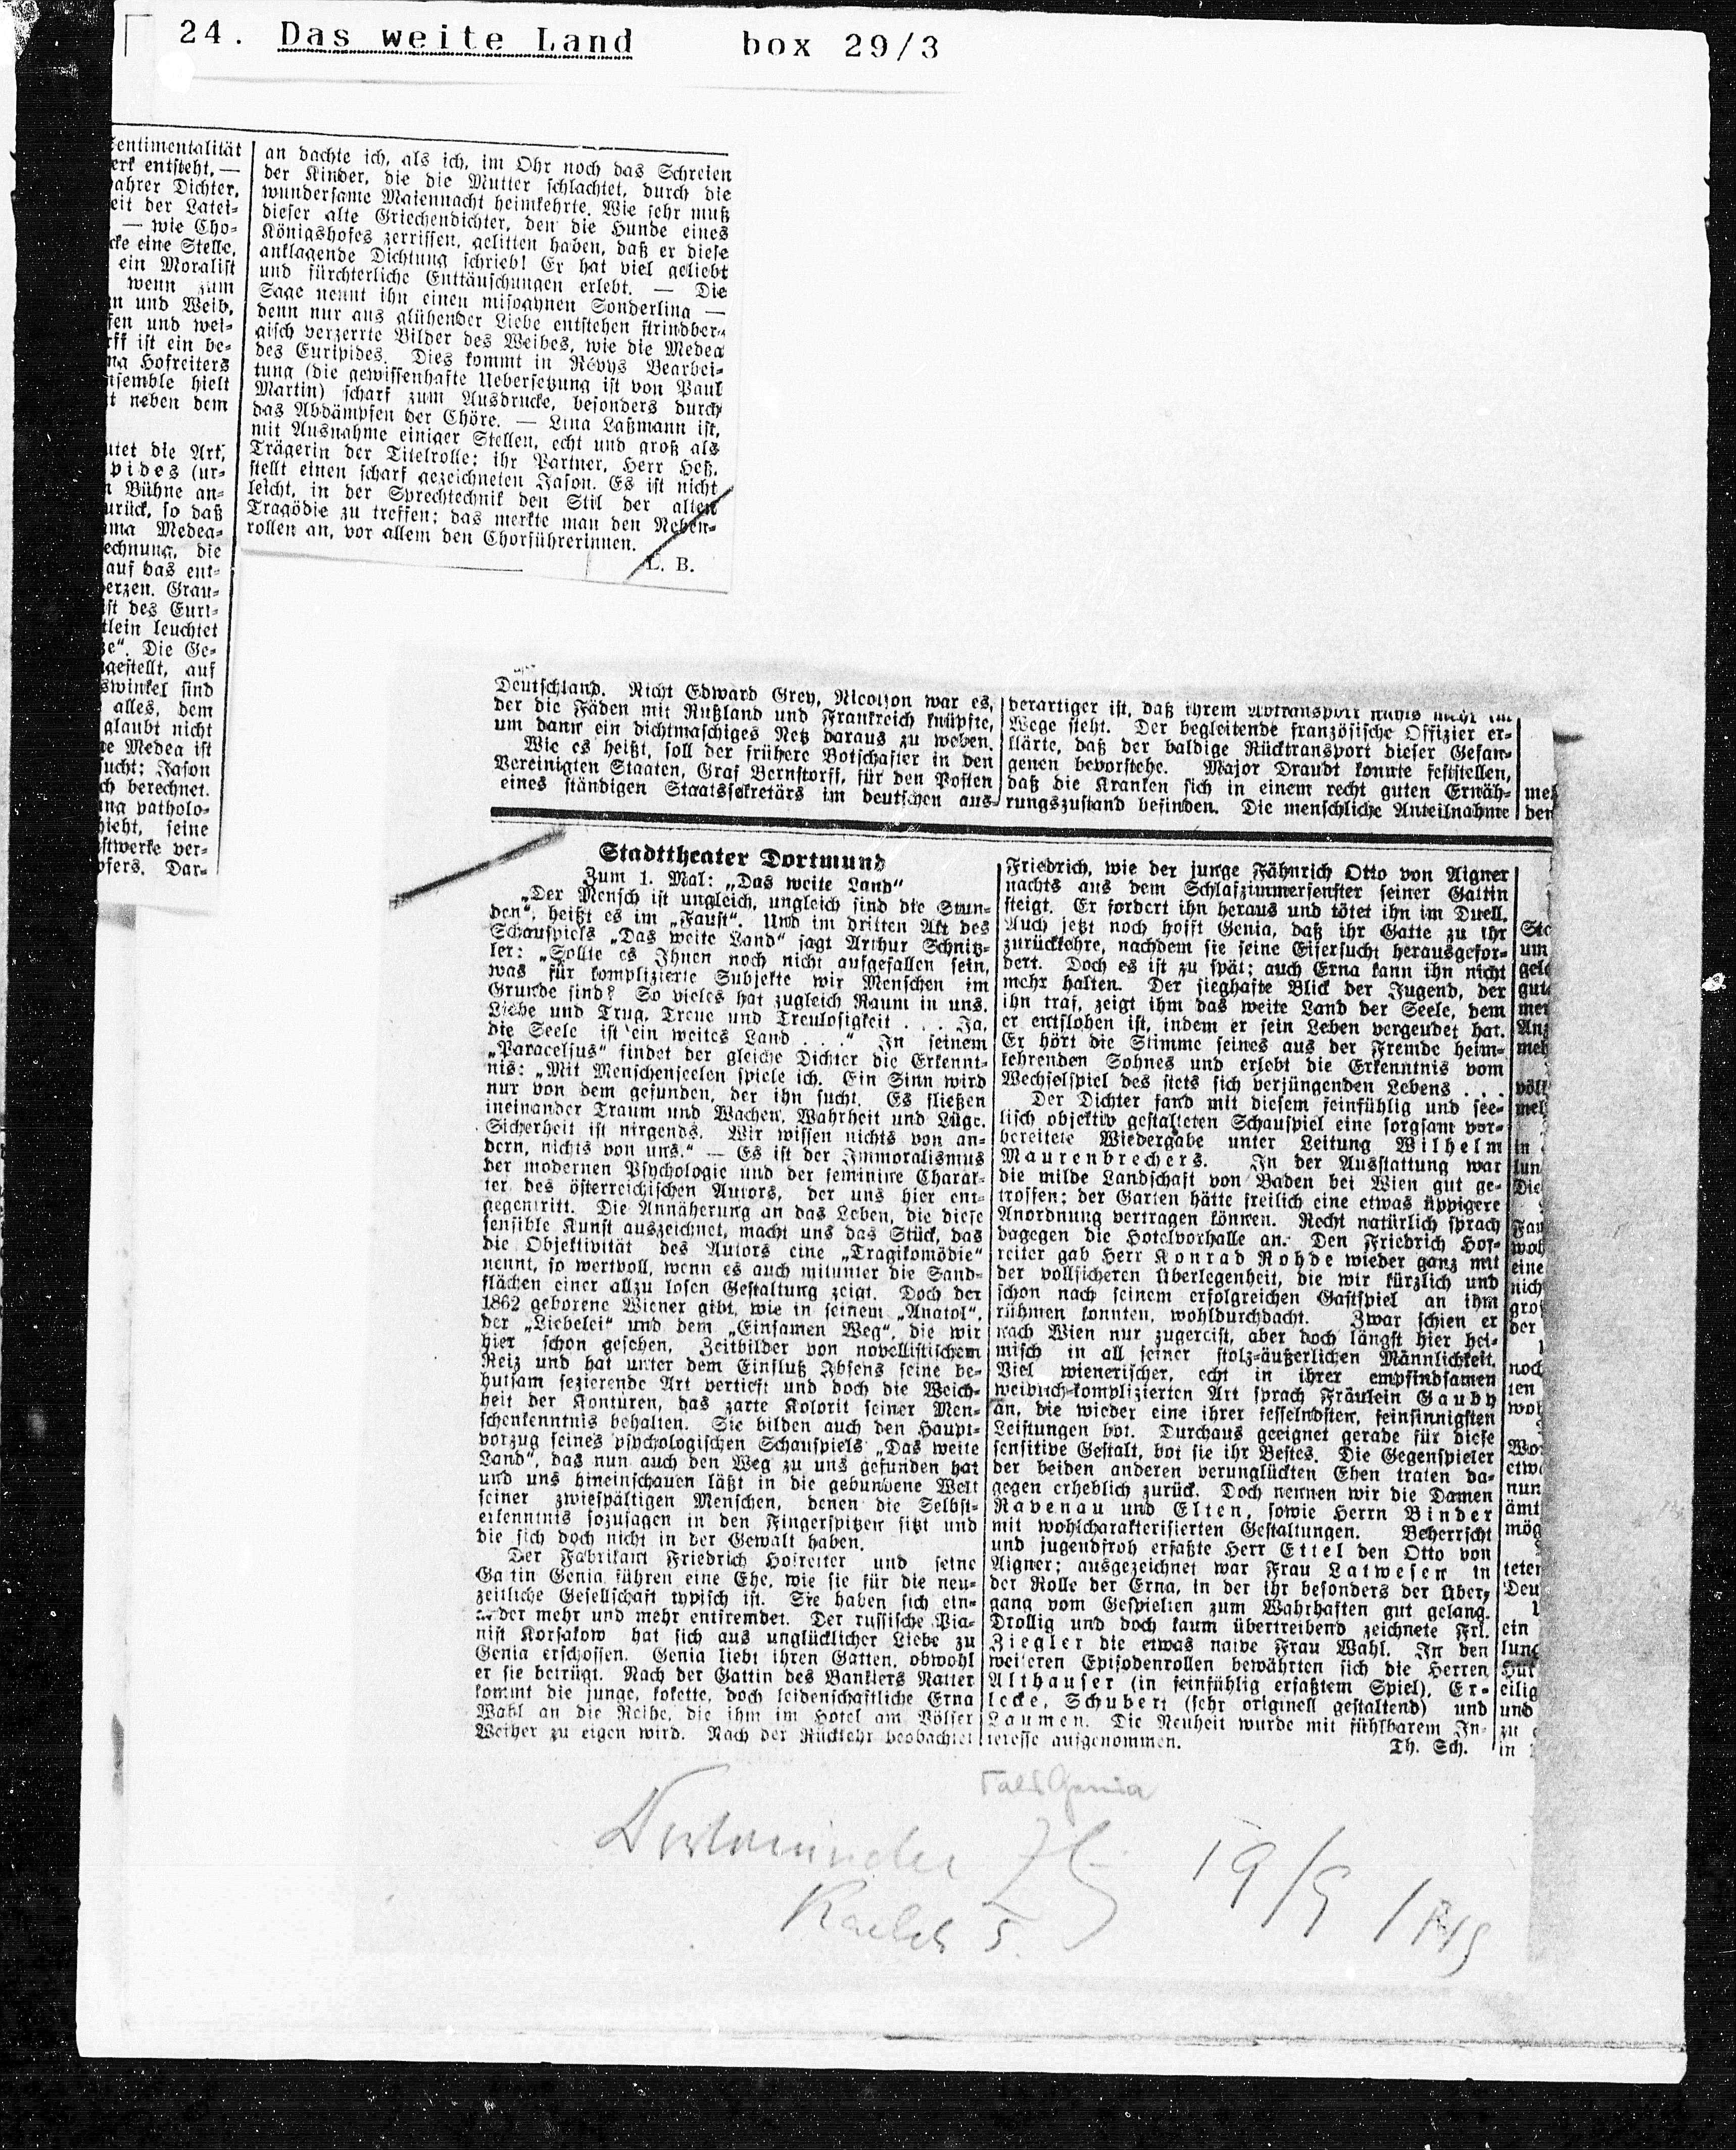 24. Das weite Land box 29/3
Sentimentalität
erk entsteht. —
ahrer Dichter,
eit der Latei-
— wie Cho-
cke eine Stelle,
ein Moralist
wenn zum
n und Weib,
fen und wei-
rff ist ein be-
na Hofreiters
nsemble hielt
it neben dem
utet die Art,
pides (ur-
n Bühne an-
urück, so daß
ma Medea-
echnung, die
auf das ent-
erzen. Grau-
ist des Euri-
tlein leuchtet
ze“. Die Ge-
gestellt, auf
swinkel sind
alles, dem
glaubt nicht
re Medea ist
ucht; Jason
ch berechnet.
ng patholo-
hieht, seine
stwerke ver-
pfers. Dar-
an dachte ich, als ich, im Ohr noch das Schreien
der Kinder, die die Mutter schlachtet, durch die
wundersame Maiennacht heimkehrte. Wie sehr muß
dieser alte Griechendichter, den die Hunde eines
Königshofes zerrissen, gelitten haben, daß er diese
anklagende Dichtung schrieb! Er hat viel geliebt
und fürchterliche Enttäuschungen erlebt. — Die
Sage nennt ihn einen misogynen Sonderling —
denn nur aus glühender Liebe entstehen strindber-
gisch verzerrte Bilder des Weibes, wie die Medea
des Euripides. Dies kommt in Révys Bearbei-
tung (die gewissenhafte Uebersetzung ist von Paul
Martin) scharf zum Ausdrucke, besonders durch
das Abdämpfen der Chöre. — Lina Laßmann ist,
mit Ausnahme einiger Stellen, echt und groß als
Trägerin der Titelrolle; ihr Partner, Herr Heß,
stellt einen scharf gezeichneten Jason. Es ist nicht
leicht, in der Sprechtechnik den Stil der alten
Tragödie zu treffen; das merkte man den Neben-
rollen an, vor allem den Chorführerinnen.
L. B.
Deutschland. Nicht Edward Grey, Nicolson war es,
der die Fäden mit Rußland und Frankreich knüpfte,
um dann ein dichtmaschiges Netz daraus zu weben.
Wie es heißt, soll der frühere Botschafter in den
Vereinigten Staaten, Graf Bernstorff, für den Posten
eines ständigen Staatssekretärs im deutschen aus-
derartiger ist, daß ihrem Abtransport nichts mehr im
Wege steht. Der begleitende französische Offizier er-
klärte, daß der baldige Rücktransport dieser Gefan-
genen bevorstehe. Major Draudt konnte feststellen,
daß die Kranken sich in einem recht guten Ernäh-
rungszustand befinden. Die menschliche Anteilnahme
Stadttheater Dortmund
Zum 1. Mal: „Das weite Land“
„Der Mensch ist ungleich, ungleich sind die Stun-
den“, heißt es im „Faust“. Und im dritten Akt des
Schauspiels „Das weite Land“ sagt Arthur Schnitz-
ler: „Sollte es Ihnen noch nicht aufgefallen sein,
was für komplizierte Subjekte wir Menschen im
Grunde sind? So vieles hat zugleich Raum in uns.
Liebe und Trug, Treue und Treulosigkeit . . . Ja,
die Seele ist ein weites Land . . .“ In seinem
„Paracelsus“ findet der gleiche Dichter die Erkennt-
nis: „Mit Menschenseelen spiele ich. Ein Sinn wird
nur von dem gefunden, der ihn sucht. Es fließen
ineinander Traum und Wachen, Wahrheit und Lüge.
Sicherheit ist nirgends. Wir wissen nichts von an-
dern, nichts von uns.“ — Es ist der Immoralismus
der modernen Psychologie und der feminine Charak-
ter des österreichischen Autors, der uns hier ent-
gegentritt. Die Annäherung an das Leben, die diese
sensible Kunst auszeichnet, macht uns das Stück, das
die Objektivität des Autors eine „Tragikomödie“
nennt, so wertvoll, wenn es auch mitunter die Sand-
flächen einer allzu losen Gestaltung zeigt. Doch der
1862 geborene Wiener gibt, wie in seinem „Anatol“,
der „Liebelei“ und dem „Einsamen Weg“, die wir
hier schon gesehen, Zeitbilder von novellistischem
Reiz und hat unter dem Einfluß Ibsens seine be-
hutsam sezierende Art vertieft und doch die Weich-
heit der Konturen, das zarte Kolorit seiner Men-
schenkenntnis behalten. Sie bilden auch den Haupt-
vorzug seines psychologischen Schauspiels „Das weite
Land“, das nun auch den Weg zu uns gefunden hat
und uns hineinschauen läßt in die gebundene Welt
seiner zwiespältigen Menschen, denen die Selbst-
erkenntnis sozusagen in den Fingerspitzen sitzt und
die sich doch nicht in der Gewalt haben.
Der Fabrikant Friedrich Hofreiter und seine
Gattin Genia führen eine Ehe, wie sie für die neu-
zeitliche Gesellschaft typisch ist. Sie haben sich ein-
ander mehr und mehr entfremdet. Der russische Pia-
nist Korsakow hat sich aus unglücklicher Liebe zu
Genia erschossen. Genia liebt ihren Gatten, obwohl
er sie betrügt. Nach der Gattin des Bankiers Natter
kommt die junge, kokette, doch leidenschaftliche Erna
Wahl an die Reihe, die ihm im Hotel am Völser
Weiher zu eigen wird. Nach der Rückkehr beobachtet
Friedrich, wie der junge Fähnrich Otto von Aigner
nachts aus dem Schlafzimmerfenster seiner Gattin
steigt. Er fordert ihn heraus und tötet ihn im Duell.
Auch jetzt noch hofft Genia, daß ihr Gatte zu ihr
zurückkehre, nachdem sie seine Eifersucht herausgefor-
dert. Doch es ist zu spät; auch Erna kann ihn nicht
mehr halten. Der sieghafte Blick der Jugend, der
ihn traf, zeigt ihm das weite Land der Seele, dem
er entflohen ist, indem er sein Leben vergeudet hat.
Er hört die Stimme seines aus der Fremde heim-
kehrenden Sohnes und erlebt die Erkenntnis vom
Wechselspiel des stets sich verjüngenden Lebens . . .
Der Dichter fand mit diesem feinfühlig und see-
lisch objektiv gestalteten Schauspiel eine sorgsam vor-
bereitete Wiedergabe unter Leitung Wilhelm
Maurenbrechers. In der Ausstattung war
die milde Landschaft von Baden bei Wien gut ge-
troffen; der Garten hätte freilich eine etwas üppigere
Anordnung vertragen können. Recht natürlich sprach
dagegen die Hotelvorhalle an. Den Friedrich Hof-
reiter gab Herr Konrad Rohde wieder ganz mit
der vollsicheren Überlegenheit, die wir kürzlich und
schon nach seinem erfolgreichen Gastspiel an ihm
rühmen konnten, wohldurchdacht. Zwar schien er
nach Wien nur zugereist, aber doch längst hier hei-
misch in all seiner stolz-äußerlichen Männlichkeit.
Viel wienerischer, echt in ihrer empfindsamen
weiblich-komplizierten Art sprach Fräulein Gauby
an, die wieder eine ihrer fesselndsten, feinsinnigsten
Leistungen bot. Durchaus geeignet gerade für diese
sensitive Gestalt, bot sie ihr Bestes. Die Gegenspieler
der beiden anderen verunglückten Ehen traten da-
gegen erheblich zurück. Doch nennen wir die Damen
Ravenau und Elten, sowie Herrn Binder
mit wohlcharakterisierten Gestaltungen. Beherrscht
und jugendfroh erfaßte Herr Ettel den Otto von
Aigner; ausgezeichnet war Frau Latwesen in
der Rolle der Erna, in der ihr besonders der Über-
gang vom Gespielten zum Wahrhaften gut gelang.
Drollig und doch kaum übertreibend zeichnete Frl.
Ziegler die etwas naive Frau Wahl. In den
weiteren Episodenrollen bewährten sich die Herren
Althauser (in feinfühlig erfaßtem Spiel), Er-
lecke, Schubert (sehr originell gestaltend) und
Laumen. Die Neuheit wurde mit fühlbarem In-
teresse aufgenommen.
Th. Sch.
Dortmunder Ztg 19/9